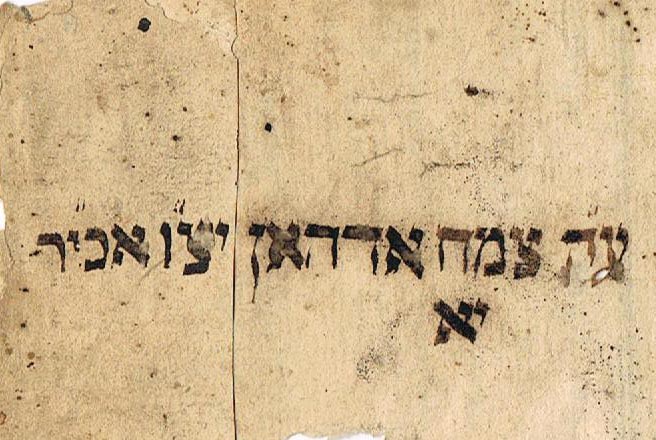 ע״ה צמח אדרהאן יצ״ו אכי״ר
י״א